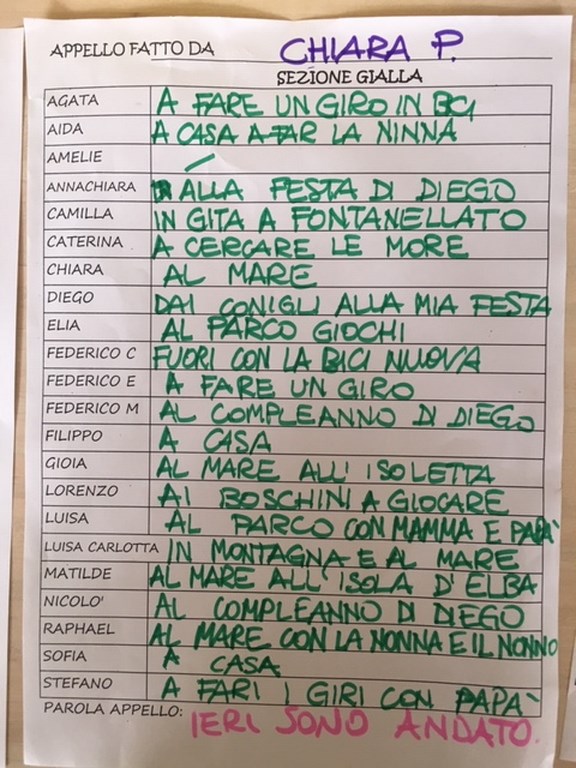 APPELLO FATTO DA CHIARA P.
SEZIONE GIALLA
AGATA A FARE UN GIRO IN BCI
AIDA A CASA A FAR LA NINNA
AMELIE /
ANNACHIARA ALLA FESTA DI DIEGO
CAMILLA IN GITA A FONTANELLATO
CATERINA A CERCARE LE MORE
CHIARA AL MARE
DIEGO DAI CONIGLI ALLA MIA FESTA
ELIA AL PARCO GIOCHI
FEDERICO C FUORI CON LA BICI NUOVA
FEDERICO E A FARE UN GIRO
FEDERICO M AL COMPLEANNO DI DIEGO
FILIPPO A CASA
GIOIA AL MARE ALL' ISOLETTA
LORENZO AI BOSCHINI A GIOCARE
LUISA AL PARCO CON MAMMA E PAPA'
LUISA CARLOTTA IN MONTAGNA E AL MARE
MATILDE AL MARE ALL'ISOLA D'ELBA
NICOLO' AL COMPLEANNO DI DIEGO
RAPHAEL AL MARE CON LA NONNA E IL NONNO
SOFIA A CASA
STEFANO A FARI I GIRI CON PAPA'
PAROLA APPELLO: IERI SONO ANDATO.